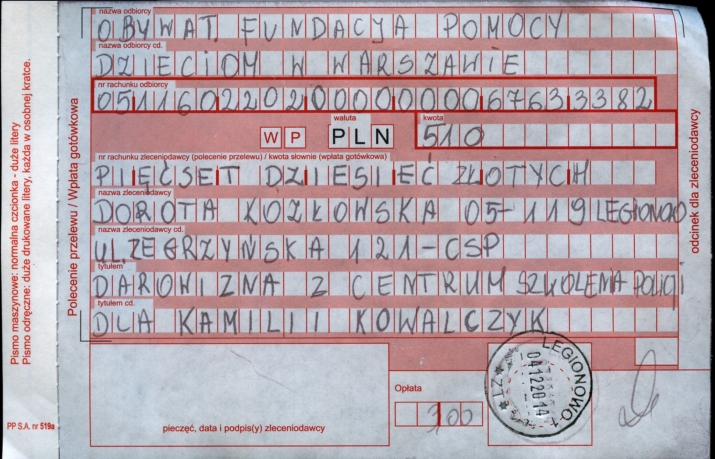 nazwa odbiorcy
OBYWAT. FUNDACJA POMOCY
nazwa odbiorcy cd.
DZIECIOM W WARSZAWIE
nr rachunku odbiorcy
05116022020000000067633382
waluta kwota
WP PLN 510
nr rachunku zleceniodawcy (polecenie przelewu) / kwota słownie (wpłata gotówkowa)
PIĘĆSET DZIESIĘĆ ZŁOTYCH
nazwa zleceniodawcy
DOROTA KOZŁOWSKA 05-119 LEGIONOWO
nazwa zleceniodawcy cd.
UL. ZEGRZYŃSKA 121-CSP
tytułem
DAROWIZNA Z CENTRUM SZKOLENIA POLICJI
tytułem cd.
DLA KAMILII KOWALCZYK
Opłata
3,00
pieczęć, data i podpis(y) zleceniodawcy
LEGIONOWO 1
04122014
Polecenie przelewu / Wpłata gotówkowa
odcinek dla zleceniodawcy
Pismo maszynowe: normalna czcionka - duże litery
Pismo odręczne: duże drukowane litery, każda w osobnej kratce.
PP S.A. nr 519a